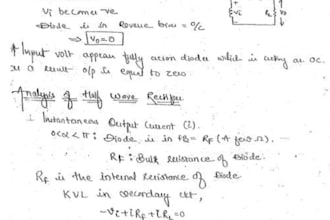 Vi becomes -ve
Diode is in Reverse bias = O/C
⇒ Vo=0
Vi
RL
Vo
* Input volt appear fully across diode which is acting as OC.
as a result o/p is equal to zero.
Analysis of Half Wave Rectifier
1. Instantaneous Output Current (i).
0<α<π : Diode is in FB = RF (A few Ω).
RF : Bulk Resistance of Diode.
RF is the Internal Resistance of Diode
KVL in secondary ckt,
-Vi+iRF+iRL=0